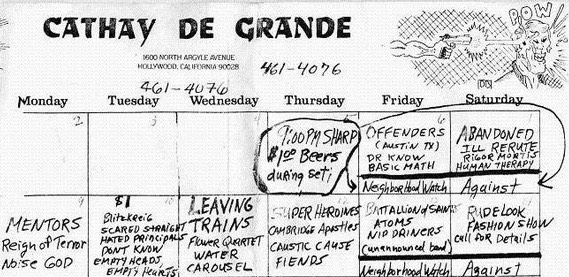 CATHAY DE GRANDE
POW
1600 NORTH ARGYLE AVENUE
HOLLYWOOD, CALIFORNIA 90028
461-4076
461-4076
Monday Tuesday Wednesday Thursday Friday Saturday
2
3
6
9:00 PM SHARP
$1.00 Beers
during set!
OFFENDERS
(AUSTIN TX)
DR KNOW
BASIC MATH
Neighborhood Watch
ABANDONED
ILL RERUTE
RIGOR MORTIS
HUMAN THERAPY
Against
9
MENTORS
Reign of Terror
Noise GOD
$1
Blitzkreig
SCARED STRAIGHT
HATED PRINCIPALS
DON'T KNOW
EMPTY HEADS
EMPTY HEARTS
LEAVING
TRAINS
Flower Quartet
WATER
CAROUSEL
SUPER HEROINES
Cambridge Apostles
CAUSTIC CAUSE
FIENDS
BATTALION of SAINTS
ATOMS
NIP DRIVERS
(unannounced band)
Neighborhood Watch
RUDE LOOK
FASHION SHOW
Call for Details
Against